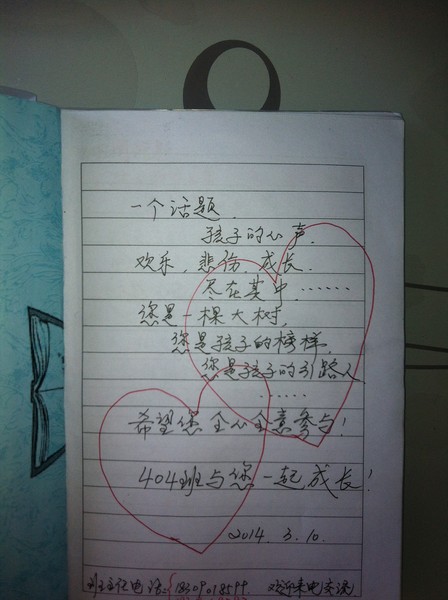 一个话题.
孩子的心声.
欢乐.悲伤.成长.
尽在其中……
您是一棵大树.
您是孩子的榜样.
您是孩子的引路人
……
希望您全心全意参与!
404班与您一起成长!
2014.3.10.
班主任电话: 18309018599. 欢迎来电交谈